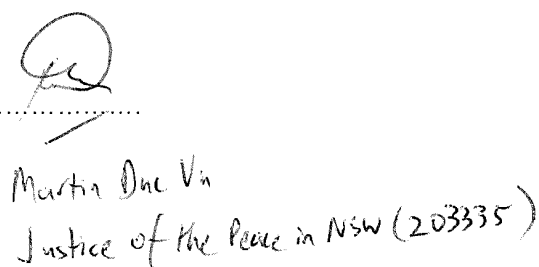 Martin Duc Vu
Justice of the Peace in NSW (203335)